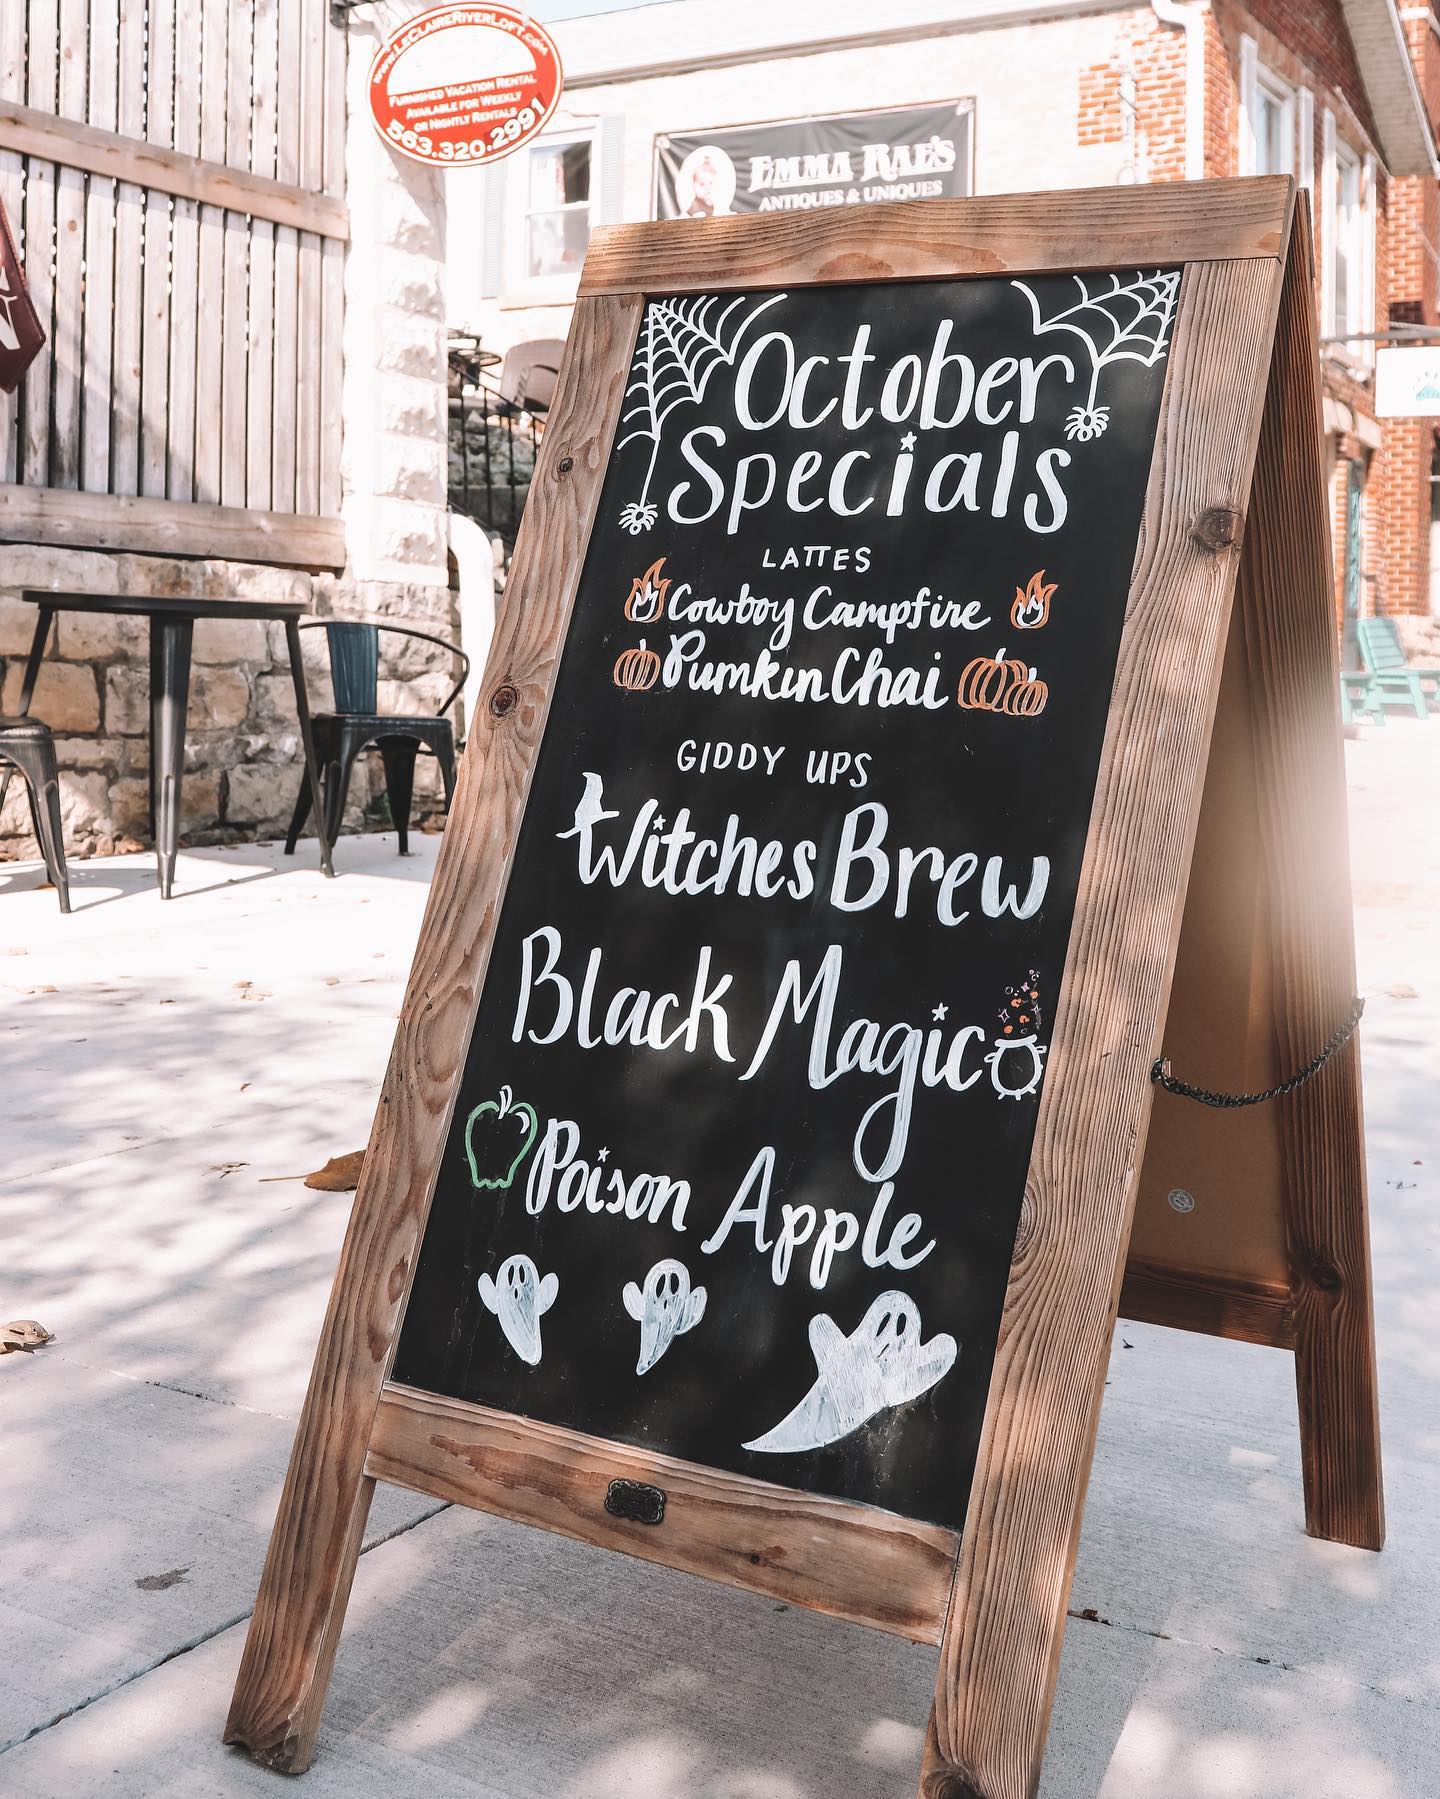 www.LeClaireRiverLoft.com
Furnished Vacation Rental
Available for Weekly
or Nightly Rentals
563.320.2991
Emma Rae's
Antiques & Uniques
October
Specials
LATTES
Cowboy Campfire
Pumkin Chai
GIDDY UPS
Witches Brew
Black Magic
Poison Apple